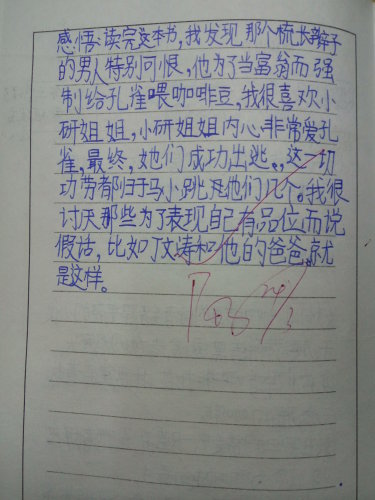 感悟:读完这本书,我发现那个梳长辫子
的男人特别可恨,他为了当富翁而强
制给孔雀喂咖啡豆,我很喜欢小
研姐姐,小研姐姐内心非常爱孔
雀,最终,她们成功出逃。,这一切
功劳都归于马小跳他们几个。我很
讨厌那些为了表现自己有品位而说
假话,比如丁文涛和他的爸爸就
是这样。